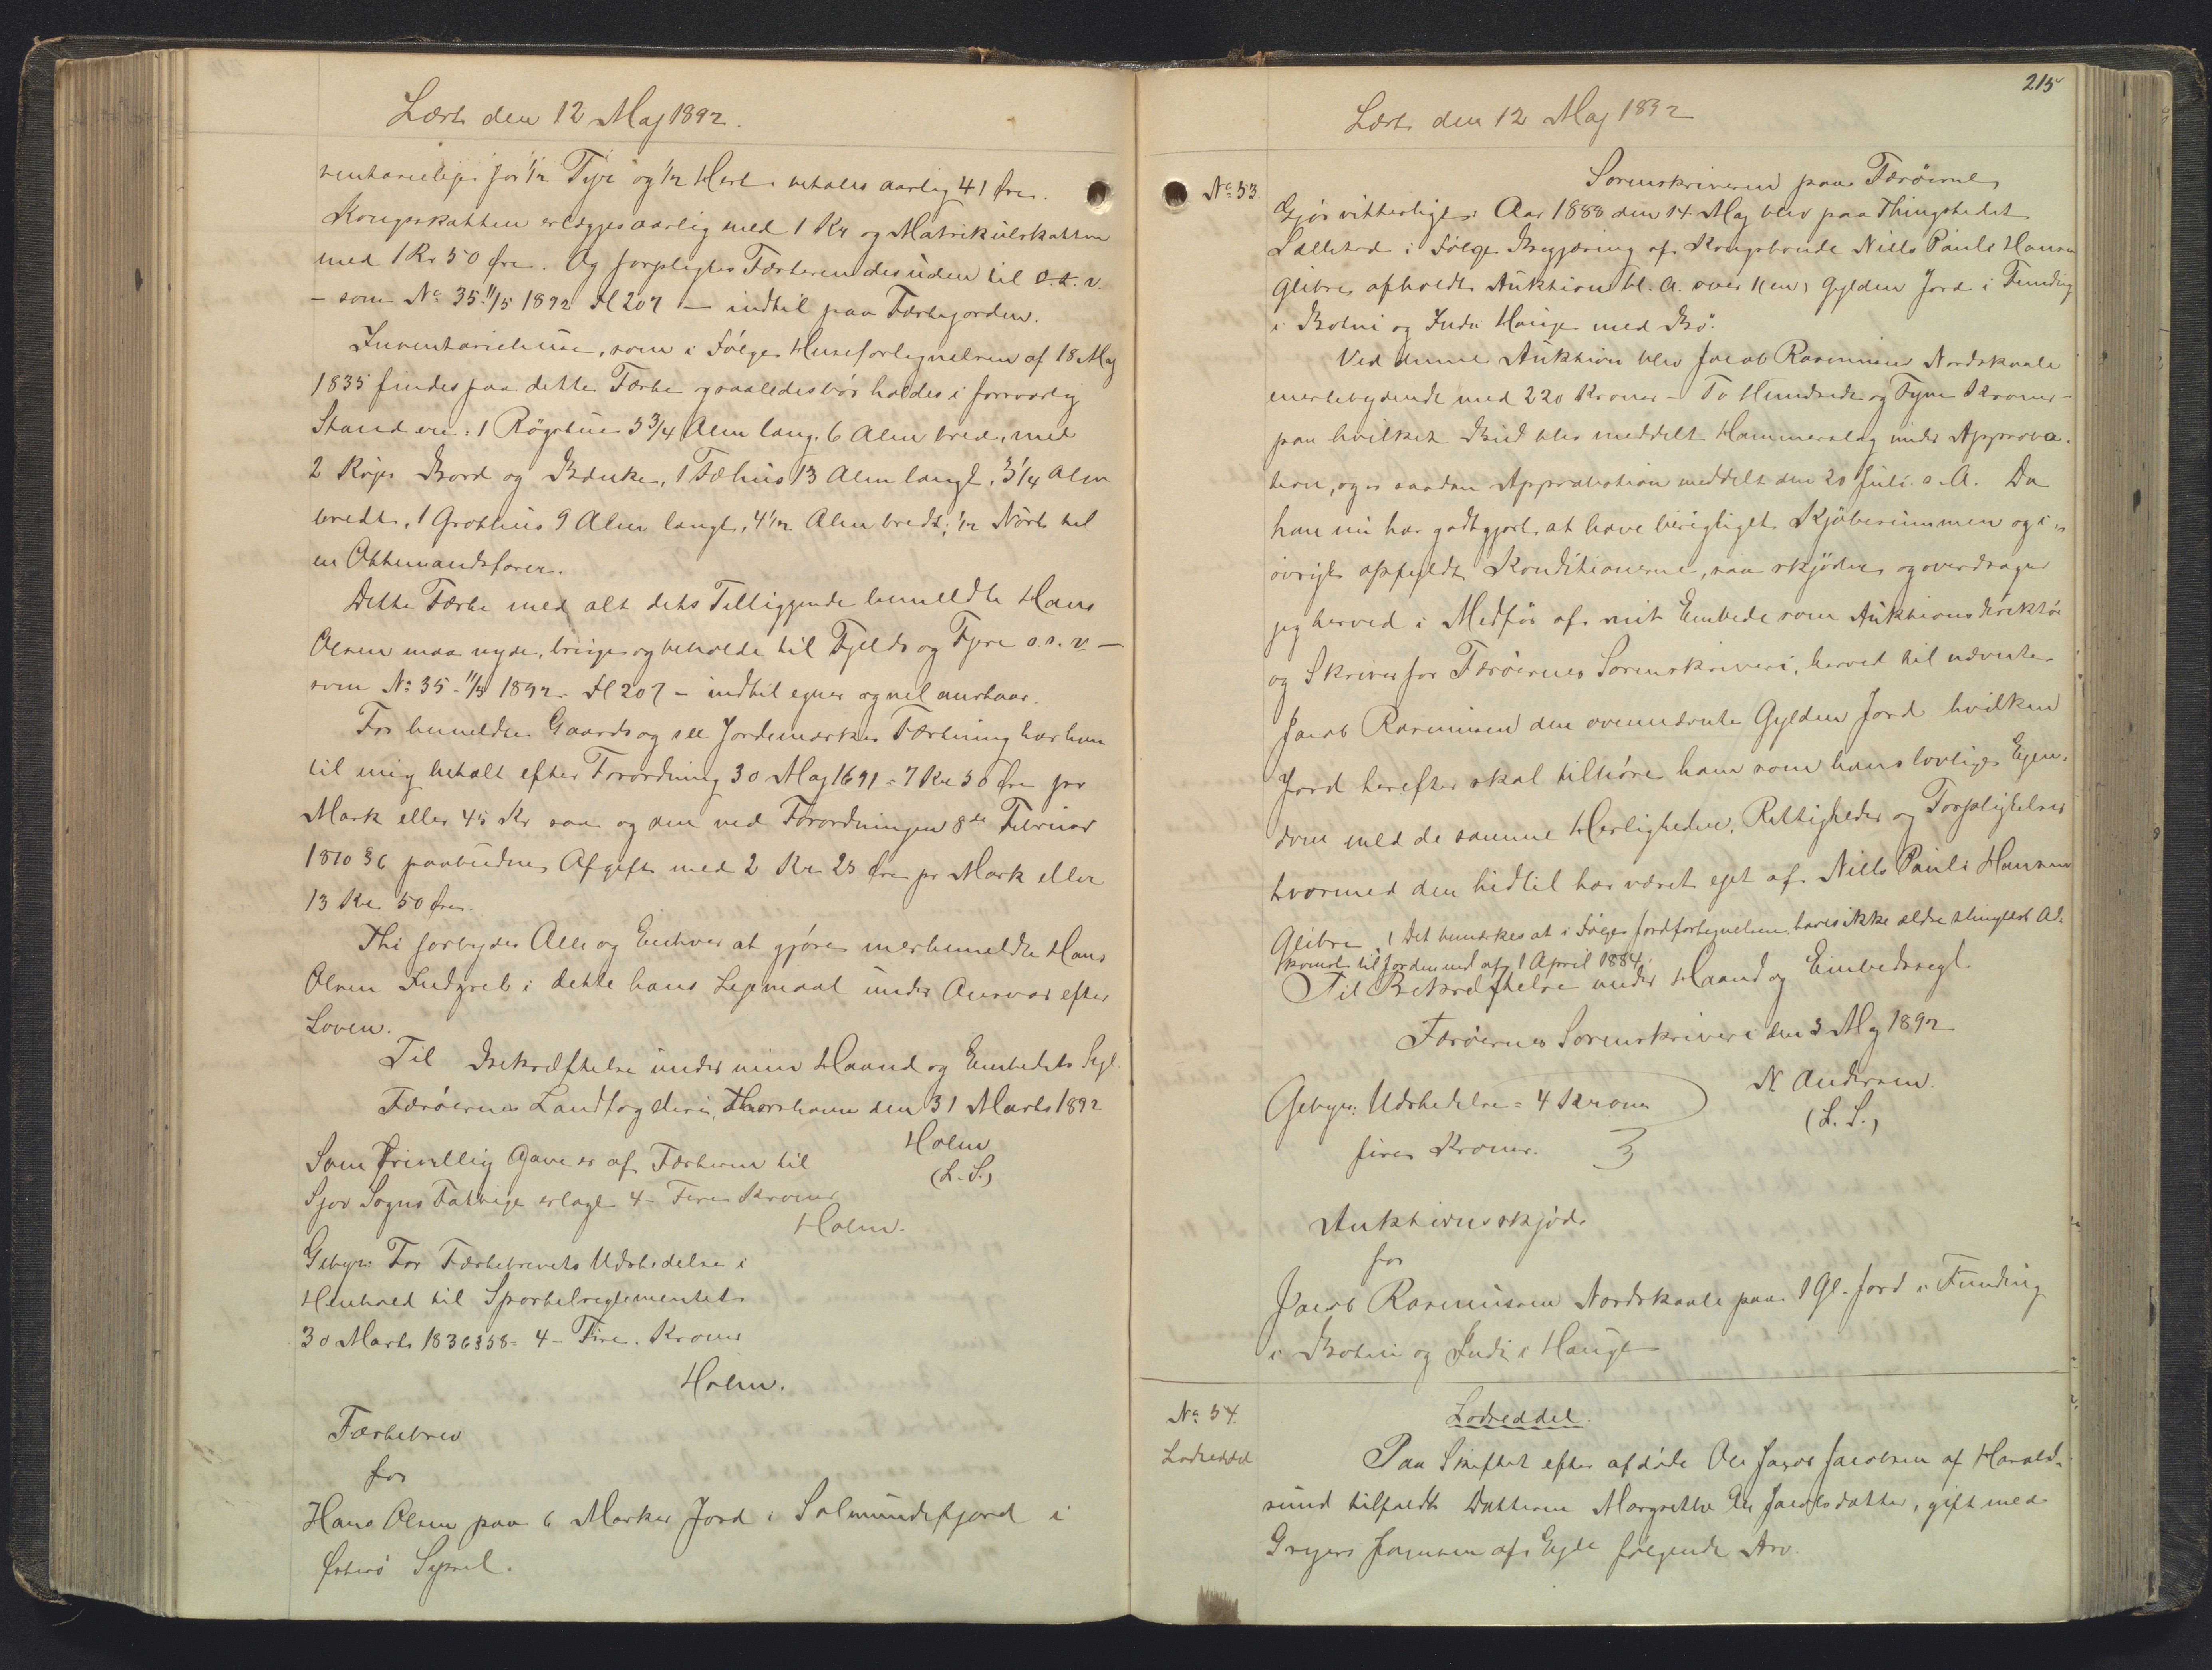 Læst den 12 Maj 1892.
ventarieleje for 1/2 Tyr og 1/2 Hest betales aarlig 41 Øre.
Kongsskatten erlægges aarlig med 1 Kr og Matrikulskatten
med 1 Kr 50 Øre. Og forpligtes Fæsteren desuden til o.s.v.
– som No 35 - 11/5 1892 Fl 207 – indtil paa Fæstejorden.
Inventariehuse, som i Følge Husefortegnelsen af 18 Maj
1835 findes paa dette Fæste og saaledes bør holdes i forsvarlig
Stand ere: 1 Røgstue 5 3/4 Alen lang, 6 Alen bred, med
2 Køjer Bord og Bænke, 1 Fæhus 13 Alen langt, 3 1/4 Alen
bredt, 1 Grothus 9 Alen langt, 4 1/2 Alen bredt; 1/2 Nøst til
en Ottemandsfarer.
Dette Fæste med alt dets Tilliggende bemeldte Hans
Olsen maa nyde, bruge og beholde til Fjelds og Fjære o.s.v. –
som No 35 - 11/5 1892 Fl 207 – indtil egner og vel anstaar.
For bemeldte Gaards og 6 Jordemarkers Fæstning har han
til mig betalt efter Forordning 30 Maj 1691 = 7 Kr 50 Øre pr
Mark eller 45 Kr saa og den ved Forordningen 8de Februar
1810 § 6 paabudne Afgift med 2 Kr 25 Øre pr Mark eller
13 Kr. 50 Øre.
Thi forbydes Alle og Enhver at gjøre merbemeldte Hans
Olsen Indgreb i dette hans Lejemaal under Ansvar efter
Loven.
Til Bekræftelse under min Haand og Embedets Segl
Færøernes Landfogderi, Thorshavn den 31 Marts 1892
Holm
(L.S.)
Som frivillig Gave er af Fæsteren til
Sjov Sogns Fattige erlagt 4 – Fire Kroner
Holm.
Gebyr: For Fæstebrevets Udstedelse i
Henhold til Sportelreglementet
30 Marts 1836 § 58 = 4 – Fire. Kroner
Holm.
Fæstebrev
for
Hans Olsen paa 6 Marker Jord i Salmundefjord i
Østerø Syssel.
215
Læst den 12 Maj 1892
No 53.
Sorenskriveren paa Færøerne
Gjør vitterligt: Aar 1888 den 14 Maj blev paa Thingstedet
Sælletrød i Følge Begjæring af Kongsbonde Niels Pauli Hansen
Glibre afholdt Auktion bl. A. over 1 (en) Gylden Jord i Funding
i Botni og Inde i Hauge med Bø.
Ved denne Auktion blev Jacob Rasmussen Nordskaale
mestbydende med 220 Kroner – To Hundrede og Tyve Kroner –
paa hvilket Bud blev meddelt Hammerslag under Approba-
tion, og er saadan Approbation meddelt den 20 Juli s. A. Da
han nu har godtgjort at have berigtiget Kjøbesummen og i-
øvrigt opfyldt Konditionerne, saa skjøder og overdrager
jeg herved i Medfør af mit Embede som Auktionsdirektør
og Skriver for Færøernes Sorenskriveri, herved til nævnte
Jacob Rasmussen den ovennævnte Gylden Jord hvilken
Jord herefter skal tilhøre ham som hans lovlige Ejen-
dom med de samme Herligheder, Rettigheder og Forpligtelser
hvormed den hidtil har været ejet af Niels Pauli Hansen
Glibre. (Det bemærkes at i Følge Jordfortegnelsen haves ikke ældre thinglæst Ad-
komst til Jorden end af 1 April 1884.
Til Bekræftelse under Haand og Embedssegl
Færøernes Sorenskriveri den 3 Maj 1892
N Andersen.
(L.S.)
Gebyr: Udstedelse = 4 Kroner
fire Kroner.
Auktionsskjøde
for
Jacob Rasmussen Nordskaale paa 1 Gl. Jord i Funding
i Botni og Inde i Hauge
No 54.
Lodseddel
Lodseddel.
Paa Skiftet efter afdøde Ole Jacob Jacobsen af Harald-
sund tilfaldt Datteren Margrethe Ole Jacobsdatter, gift med
Joensen af Ejde følgende Arv.